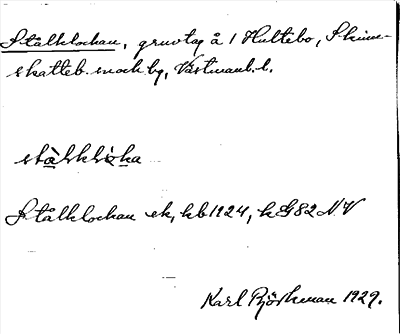 Stålklockan, gruvtag å 1 Hultebo, Skinn-
skatteb. snock by, Västmanl. l.
stålkklåka
Stålklockan ek, kb 1924, k G82 N.V
Karl Björkman 1929.